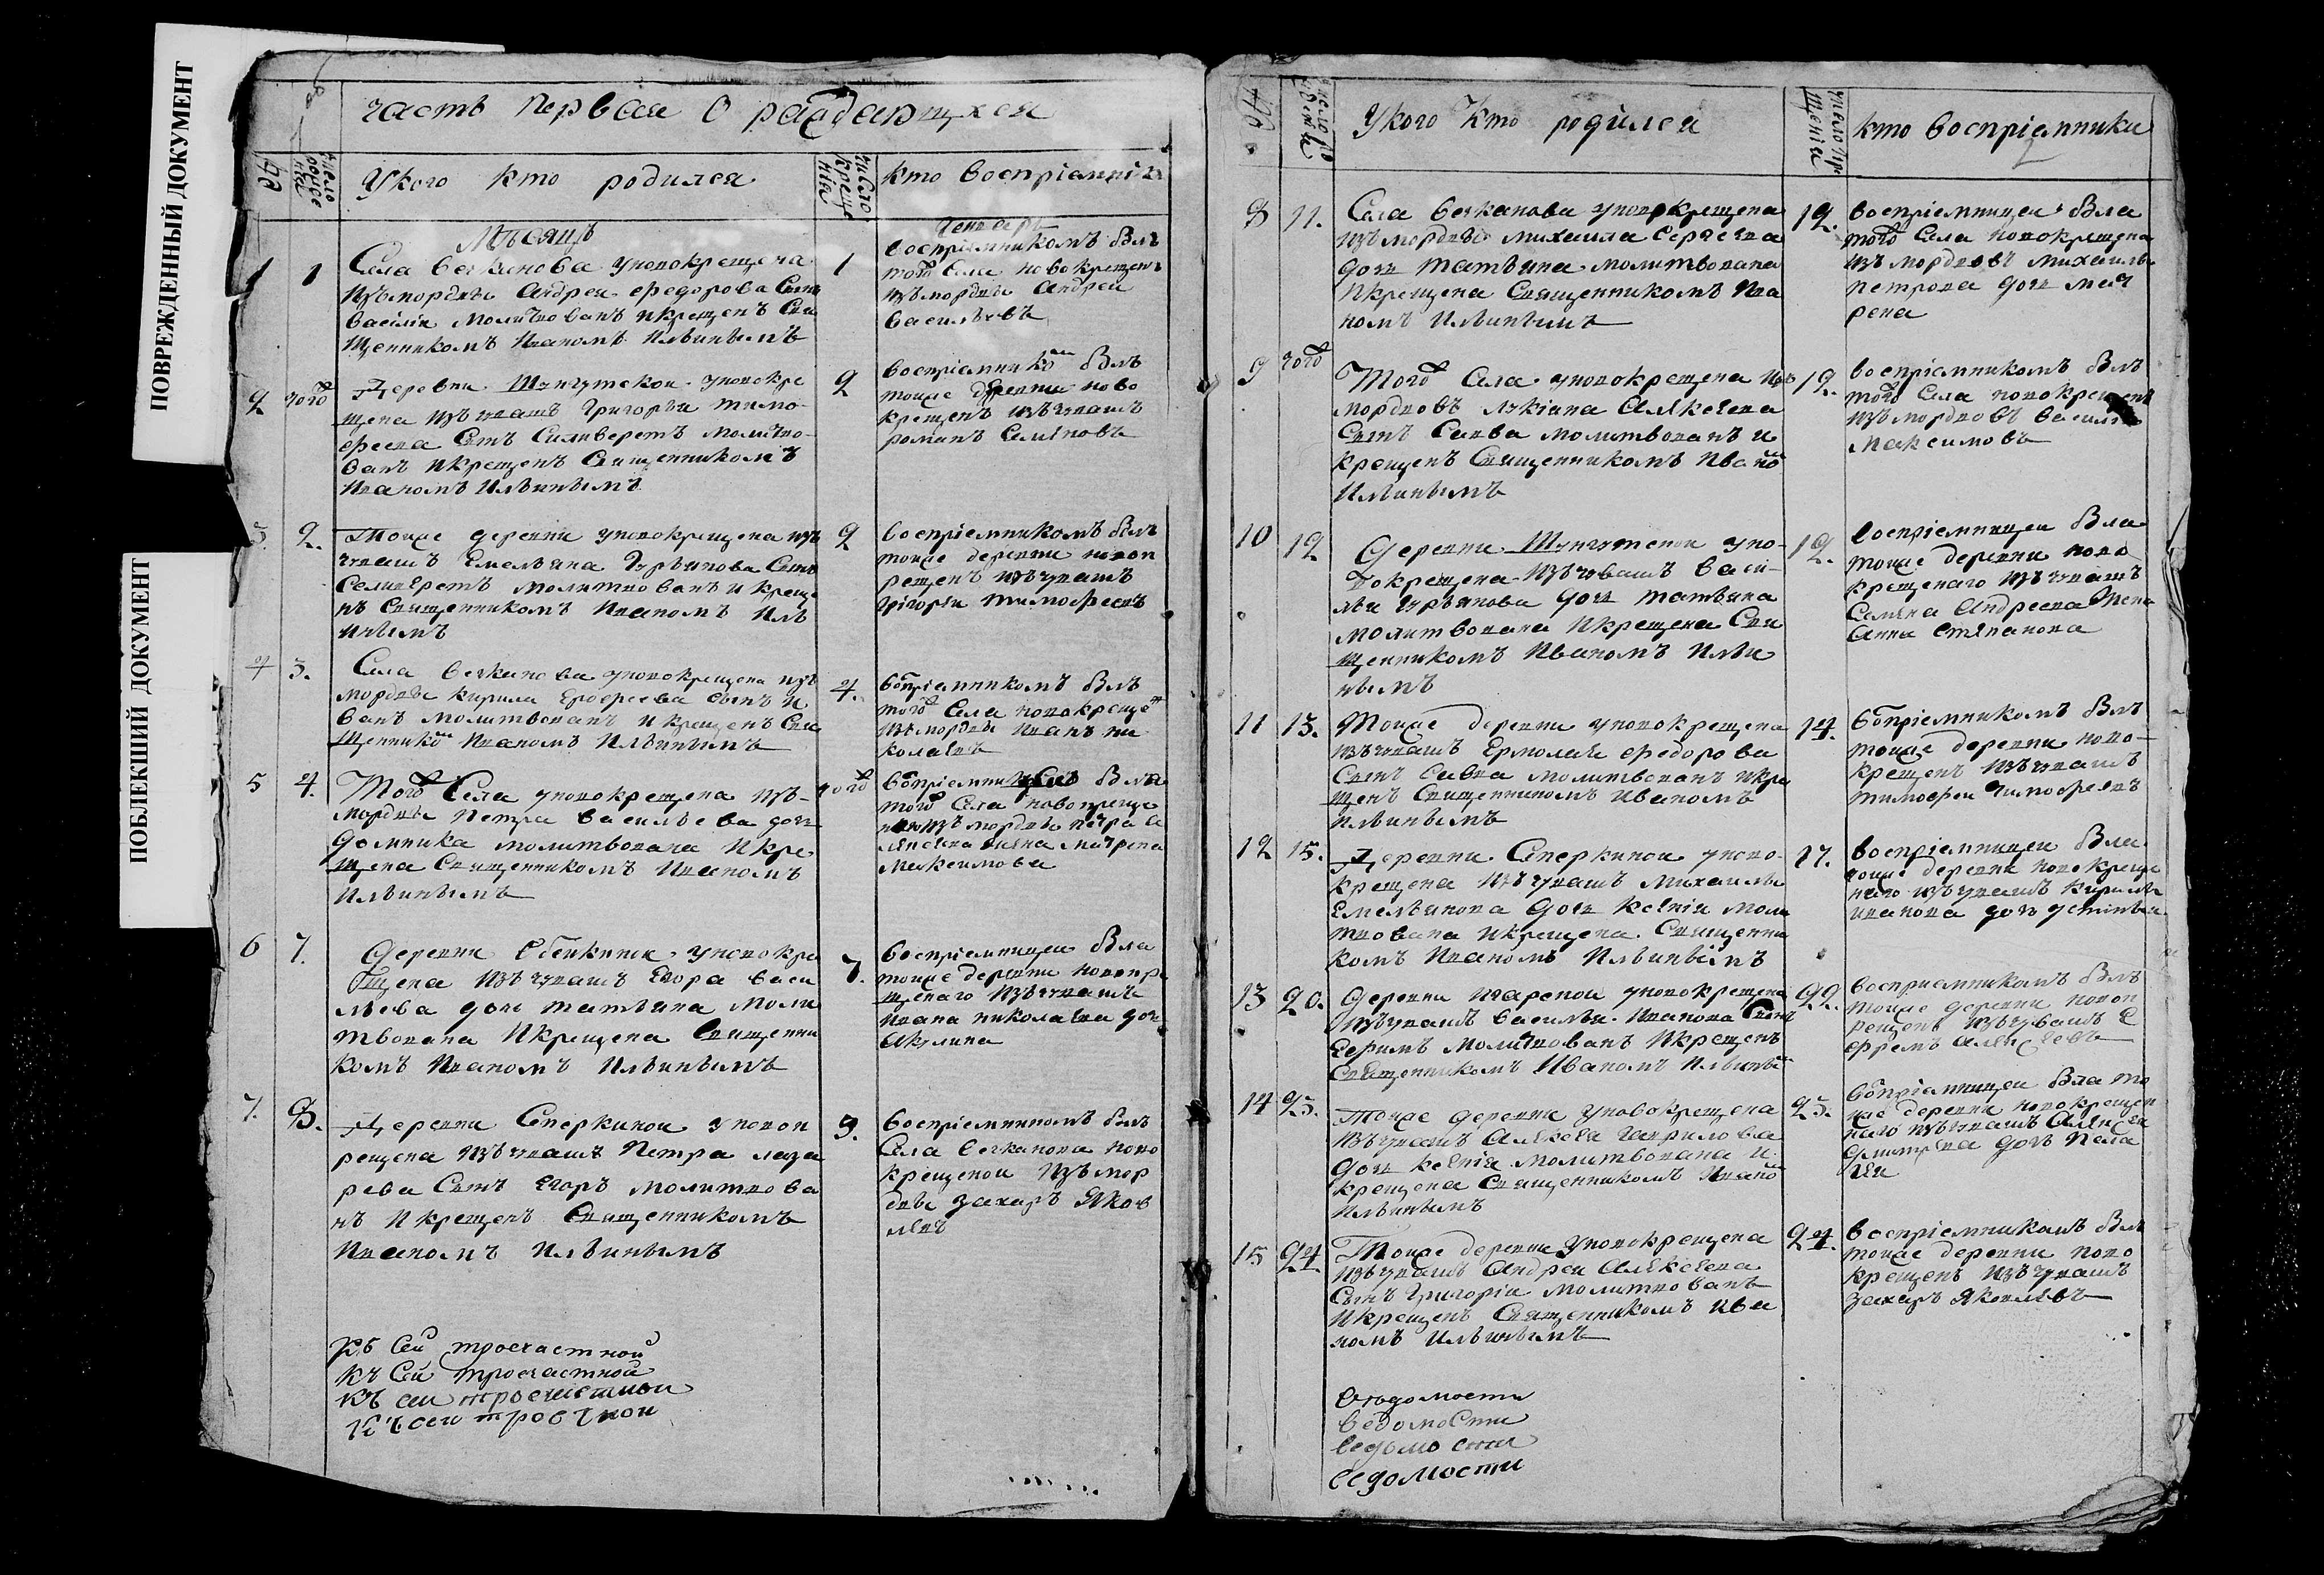 ПОВРЕЖДЕННЫЙ ДОКУМЕНТ
ПОБЛЕКШИЙ ДОКУМЕНТ
часть первая о раждающихся
число рожде нія
У кого кто родился
число креще нія
кто воспріемники
Мѣсяцъ
Генварь
1
1
Села Бечканова уновокрещена
изъ мордвы Андрея Федорова сынъ
Василій молитвованъ и крещенъ свя
щенникомъ Иваномъ Ильинымъ
1
воспріемникомъ былъ
того села новокрещенъ
изъ мордвы Андрей
Васильевъ
2
того
Деревни уновокре
щена изъ чувашъ Григорья Тимо
феева сынъ Силиверстъ молитво
ванъ и крещенъ священникомъ
Иваномъ Ильинымъ
2
воспріемникомъ былъ
тоиже деревни ново
крещенъ изъ чувашъ
Романъ Семѣновъ
3.
2.
Тоиже деревни уновокрещена изъ
чувашъ Емельяна Гурьянова сынъ
Селиверстъ молитвованъ и креще
нъ священникомъ Иваномъ Иль
инымъ
2
воспріемникомъ былъ
тоиже деревни новок
рещенъ изъ чувашъ
Григорьи Тимофеевъ
4
3.
Села Бечканова уновокрещена изъ
мордвы Кирила Ерофеева сынъ И
ванъ молитвованъ и крещенъ свя
щенникомъ Иваномъ Ильинымъ
4.
воспріемникомъ былъ
того села новокрещенъ
изъ мордвы Иванъ Ни
колаевъ
5
4.
Того села уновокрещена изъ
мордвы Петра Васильева дочь
Домника молитвована и кре
щена священникомъ Иваномъ
Ильинымъ
того
воспріемницею была
того села новокреще
изъ мордвы Петра
Матрена
Максимова
6
7.
Деревни уновокре
щена изъ чувашъ Егора Васи
льева дочь Татьяна моли
твована и крещена священни
комъ Иваномъ Ильинымъ
7.
воспріемницеи была
тоиже деревни новокре
щенаго изъ чувашъ
Ивана Николаева дочь
Акулина
7.
8.
Деревни Сперкинои уновок
рещена изъ чувашъ Петра Лаза
рева сынъ Егоръ молитвова
нъ и крещенъ священникомъ
Иваномъ Ильинымъ
9.
воспріемникомъ былъ
села Бечканова ново
крещеной изъ мор
двы Захаръ Яков
левъ
Къ сей троечастной
Къ сей троечастной
Къ сеи троечастнои
Къ сеи
У кого кто родился
число кре щенія
кто воспріемники
8
11.
Села Бечканова уновокрещена
изъ мордвы Михаила Сергеева
дочь Татьяна молитвована
и крещена священникомъ Ива
номъ Ильинымъ
12.
воспріемницеи была
того села новокрещена
изъ мордвовъ Михаилы
Петрова дочь Мат
рена
9
того
Того села уновокрещена изъ
мордвовъ Лукіана Алѣксеева
сынъ Савва молитвованъ и
крещенъ священникомъ Иваномъ
Ильинымъ
12.
воспріемникомъ былъ
того села новокрещенъ
изъ мордвовъ Василеи
Максимовъ
10
12
Деревни уно
вокрещена изъ чувашъ Васи
лья Гурьянова дочь Татьяна
молитвована и крещена свя
щенникомъ Иваномъ Ильи
нымъ
12.
воспріемницеи была
тоиже деревни ново
крещенаго изъ чувашъ
Семѣна Андреева жена
Анна Стѣпанова
11
13.
Тоиже деревни уновокрещена
изъ чувашъ Ермолаия Федорова
сынъ Савва молитвованъ и кре
щенъ священникомъ Иваномъ
Ильинымъ
14.
воспріемникомъ былъ
тоиже деревни ново
крещенъ изъ чувашъ
Тимофеи Тимофеевъ
12
15.
Деревни Сперкинои уново
крещена изъ чувашъ Михаилы
Емельянова дочь Ксенія моли
твована и крещена священни
комъ Иваномъ Ильинымъ
17.
воспріемницеи была
тоиже деревни новокреще
наго изъ чувашъ Кирилы
Иванова дочь Устинья
13
20.
Деревни уновокрещена
изъ чувашъ Василья Иванова сынъ
Ефримъ молитвованъ и крещенъ
священникомъ Иваномъ Ильинымъ
22.
воспріемникомъ былъ
тоиже деревни новок
рещенъ изъ чувашъ Е
фремъ Алѣксеевъ
14
23.
Тоиже деревни уновокрещена
изъ чувашъ Алѣксея Гаврилова
дочь Ксенія молитвована и
крещена священникомъ Иваномъ
Ильинымъ
23.
воспріемницеи была то
иже деревни новокрещен
наго изъ чувашъ Алѣксея
Дмитрева дочь Пела
гея
15
24.
Тоиже деревни уновокрещена
изъ чувашъ Андрея Алѣксеева
сынъ Григорій молитвованъ
и крещенъ священникомъ Ива
номъ Ильинымъ
24.
воспріемникомъ былъ
тоиже деревни ново
крещенъ изъ чувашъ
Захаръ Яковлевъ
вѣдомости
ведомости
ведомости
ведомости